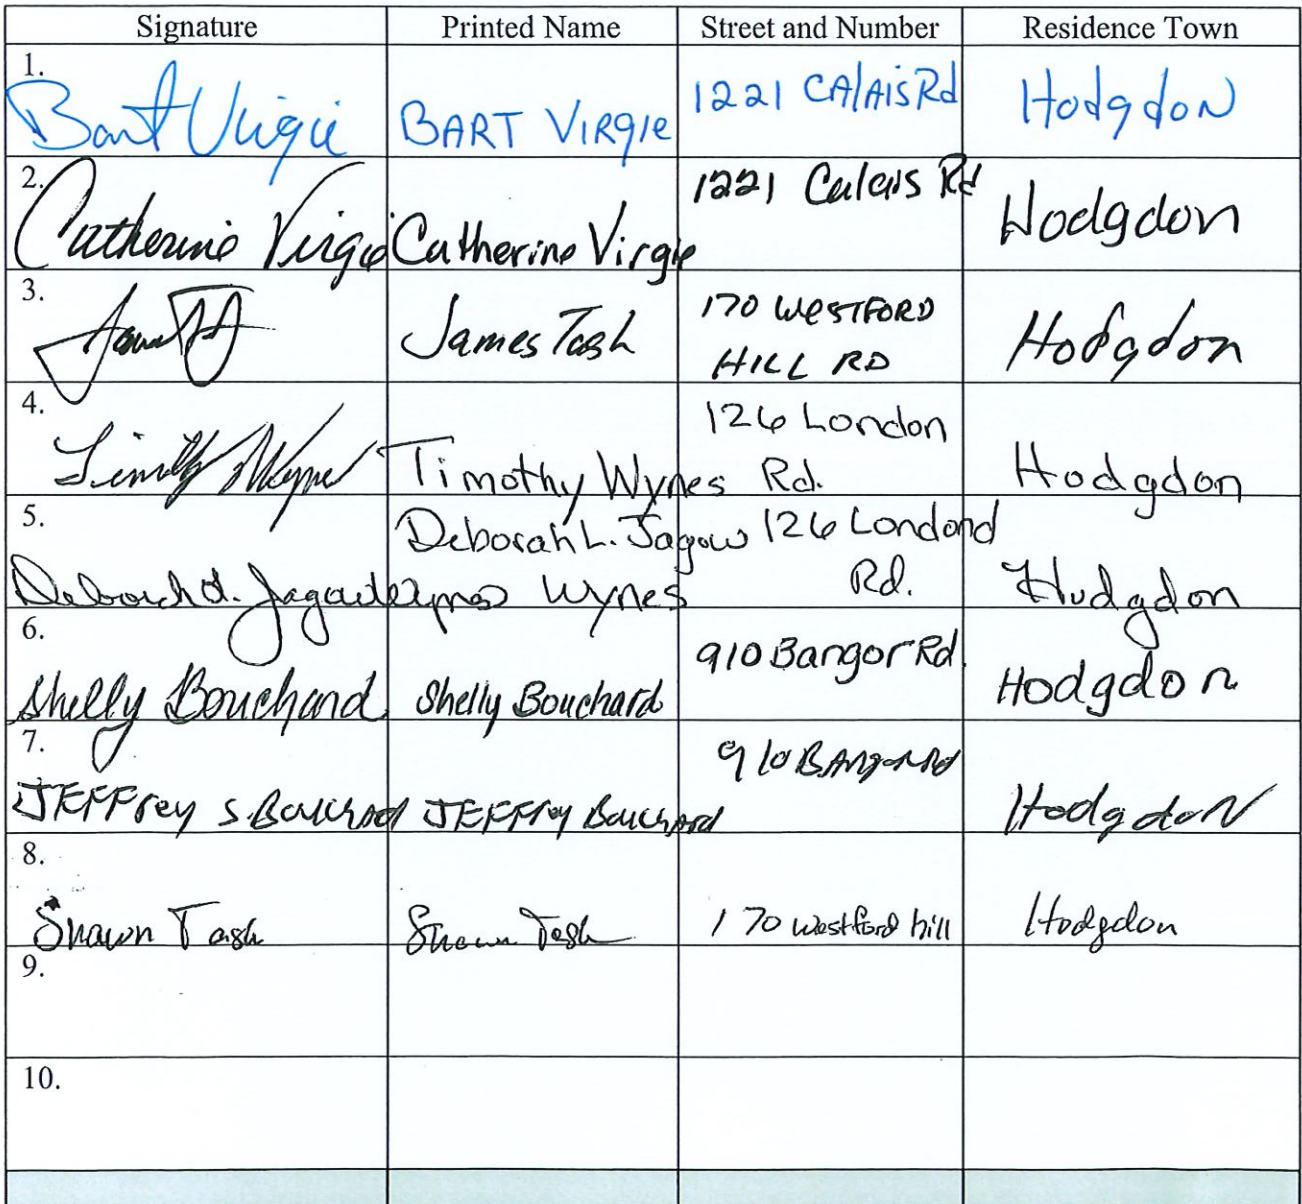 Signature Printed Name Street and Number Residence Town
1.
Bart Virgie BART VIRGIE 1221 CALAIS Rd Hodgdon
2.
Catherine Virgie Catherine Virgie 1221 Calais Rd Hodgdon
3.
James Tash 170 WESTFORD Hodgdon
HILL RD
4.
126 London
Timothy Wynes Timothy Wynes Rd. Hodgdon
5.
Deborah L. Jagow 126 Londond
Deborah L. Jagow Wynes Wynes Rd. Hudgdon
6.
Shelly Bouchard Shelly Bouchard 910 Bangor Rd. Hodgdon
7.
910 BAngor Rd
JEFFrey S. Bouchard JEFFrey Bouchard Hodgdon
8.
Shawn Tash Shawn Tash 170 Westford hill Hodgdon
9.
10.